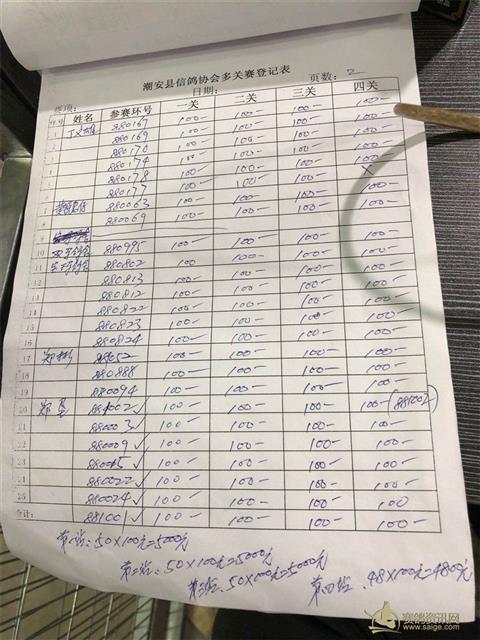 潮安县信鸽协会多关赛登记表
日期: 页数: 2
序号 姓名 参赛环号 一关 二关 三关 四关
1 880167 100- 100- 100- 100-
2 880169 100- 100- 100- 100-
3 880170 100- 100- 100- 100-
4 880174 100- 100- 100- 100-
5 880178 100- 100- 100- 100-
6 880177 100- 100- 100- X
7 880063 100- 100- 100- 100-
8 880069 100- 100- 100- 100-
9
10 880995 100- 100- 100- 100-
11 880802 100- 100- 100- 100-
12 880813 100- 100- 100- 100-
13 880812 100- 100- 100- 100-
14 880822 100- 100- 100- 100-
15 880823 100- 100- 100- 100-
16 880824 100- 100- 100- 100-
17 郑彬 100- 100- 100- 100-
18 880888 100- 100- 100- 100-
19 880094 100- 100- 100- 100-
20 881002✓ 100- 100- 100- 100-
21 880003✓ 100- 100- 100- 100-
22 880009✓ 100- 100- 100- 100-
23 880015✓ 100- 100- 100- 100-
24 880022✓ 100- 100- 100- 100-
25 880024✓ 100- 100- 100- 100
合计: 881001✓ 100- 100- 100- 100-
第一班: 50×100元=5000元
第二班: 50×100元=5000元
第三班: 50×100元=5000元
第四班: 48×100元=4800元
赛鸽资讯网
www.saige.com